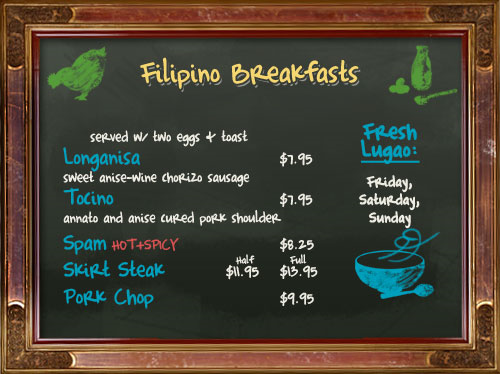 Filipino Breakfasts
served w/ two eggs + toast
Longanisa $7.95
sweet anise-wine chorizo sausage
Tocino $7.95
annato and anise cured pork shoulder
Spam HOT+SPICY $8.25
Half Full
Skirt Steak $11.95 $13.95
Pork Chop $9.95
Fresh
Lugao:
Friday,
Saturday,
Sunday